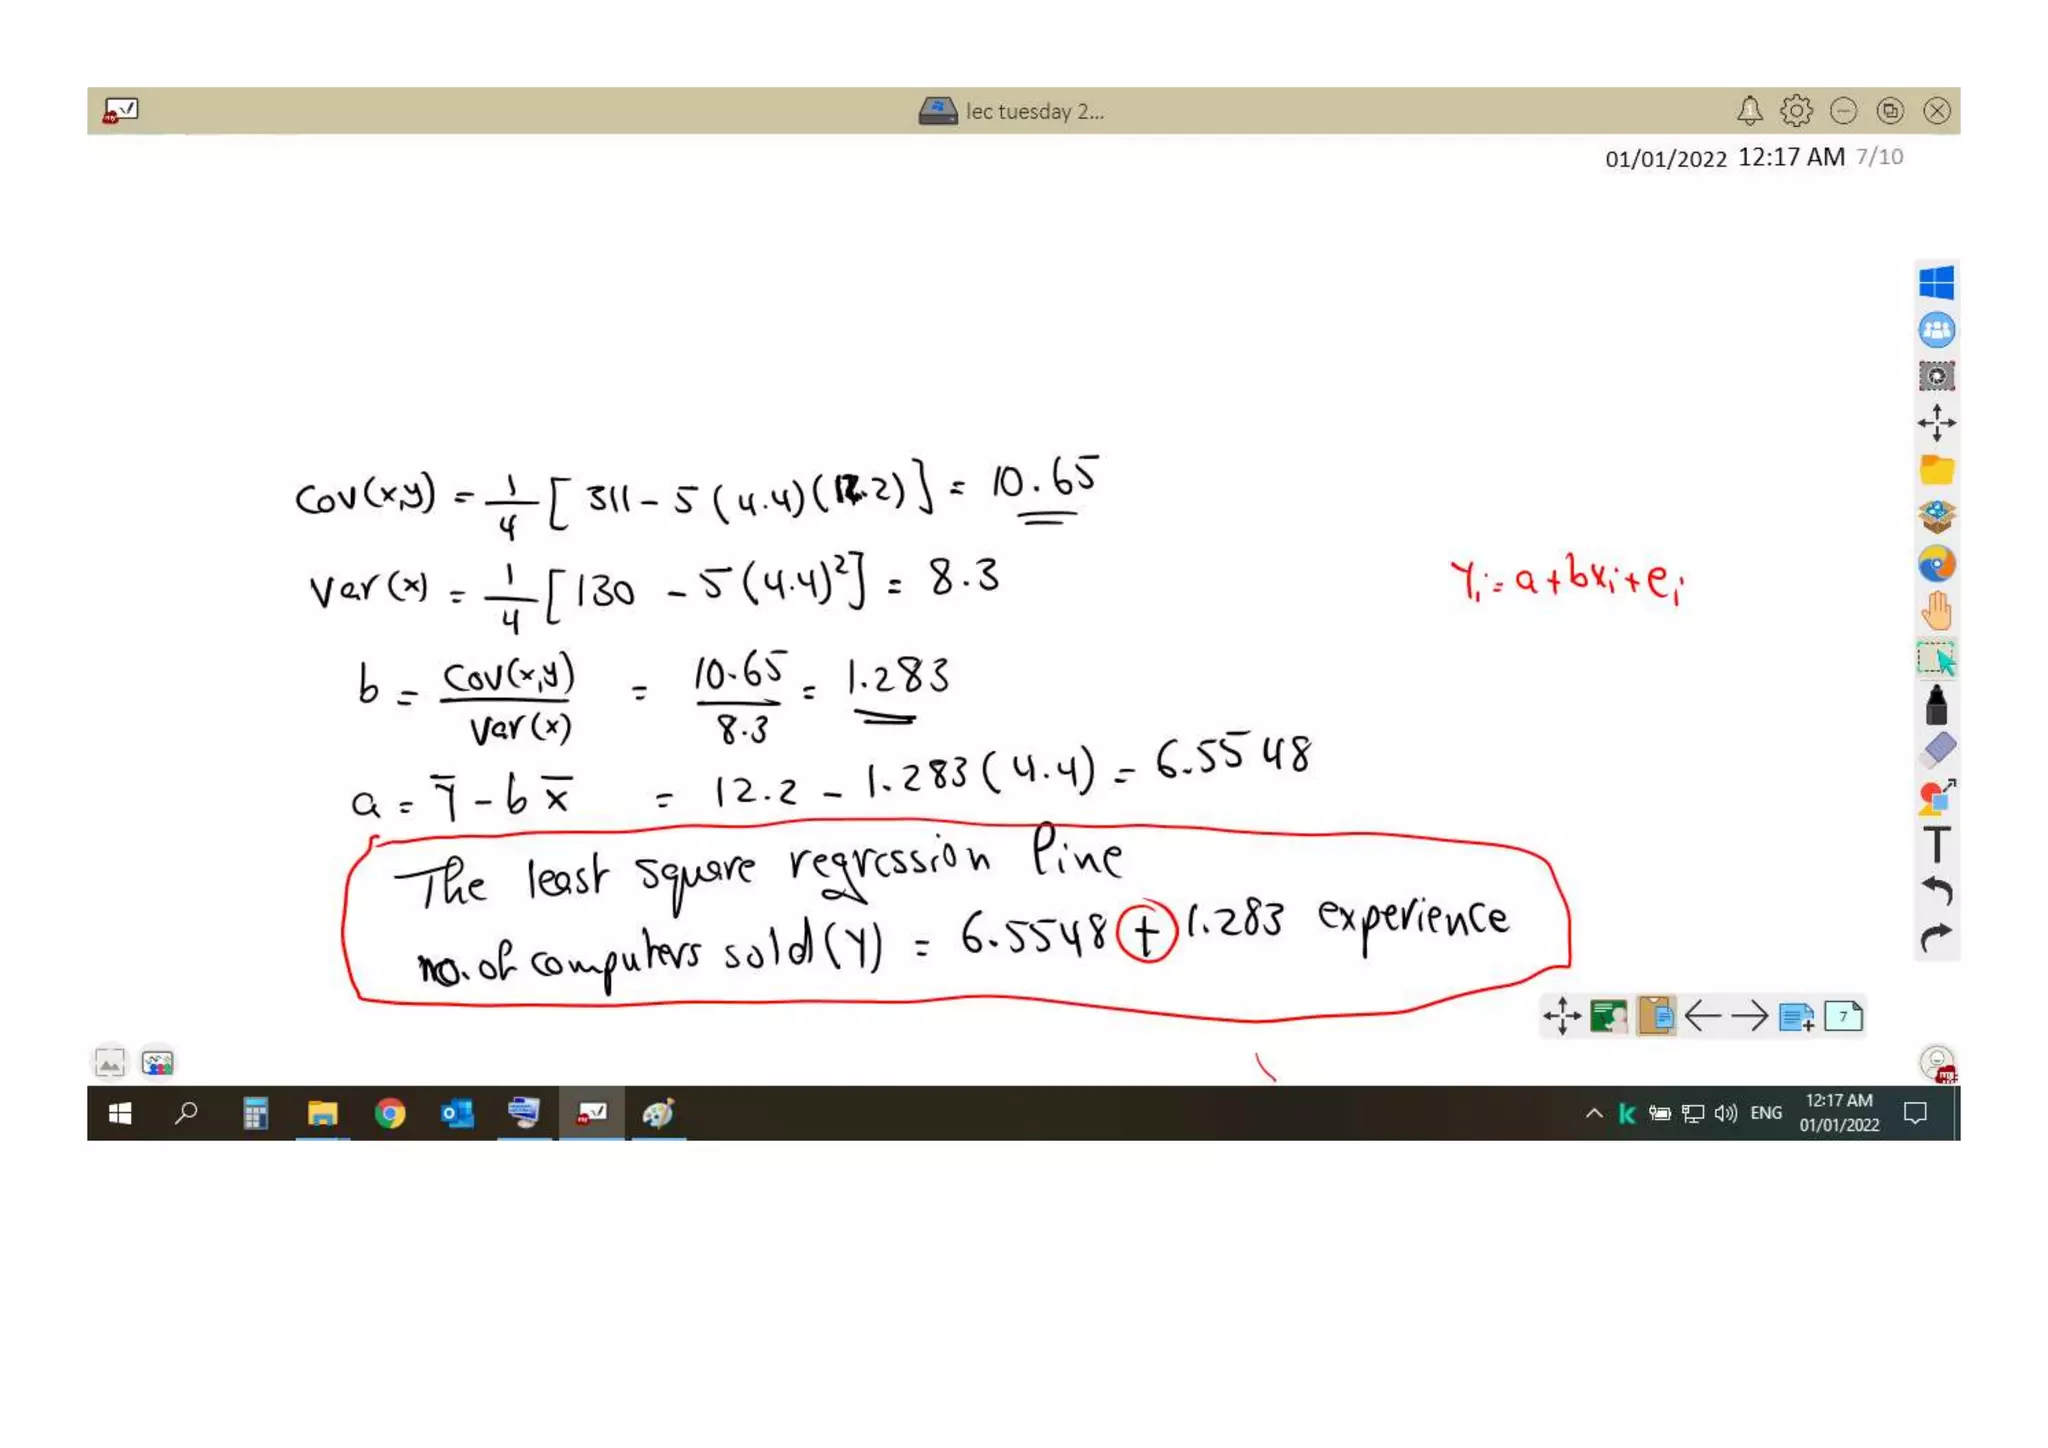 lec tuesday 2...
01/01/2022 12:17 AM 7/10
Cov(x,y) = 1/4 [ 311 - 5 (4.4)(12.2) ] = 10.65
Var(x) = 1/4 [ 130 - 5 (4.4)² ] = 8.3
Yi = a + bxi + ei
b = Cov(x,y) / Var(x) = 10.65 / 8.3 = 1.283
a = Ȳ - b x̄ = 12.2 - 1.283 (4.4) = 6.5548
The least square regression line
no. of computers sold (Y) = 6.5548 + 1.283 experience
7
ENG
12:17 AM
01/01/2022